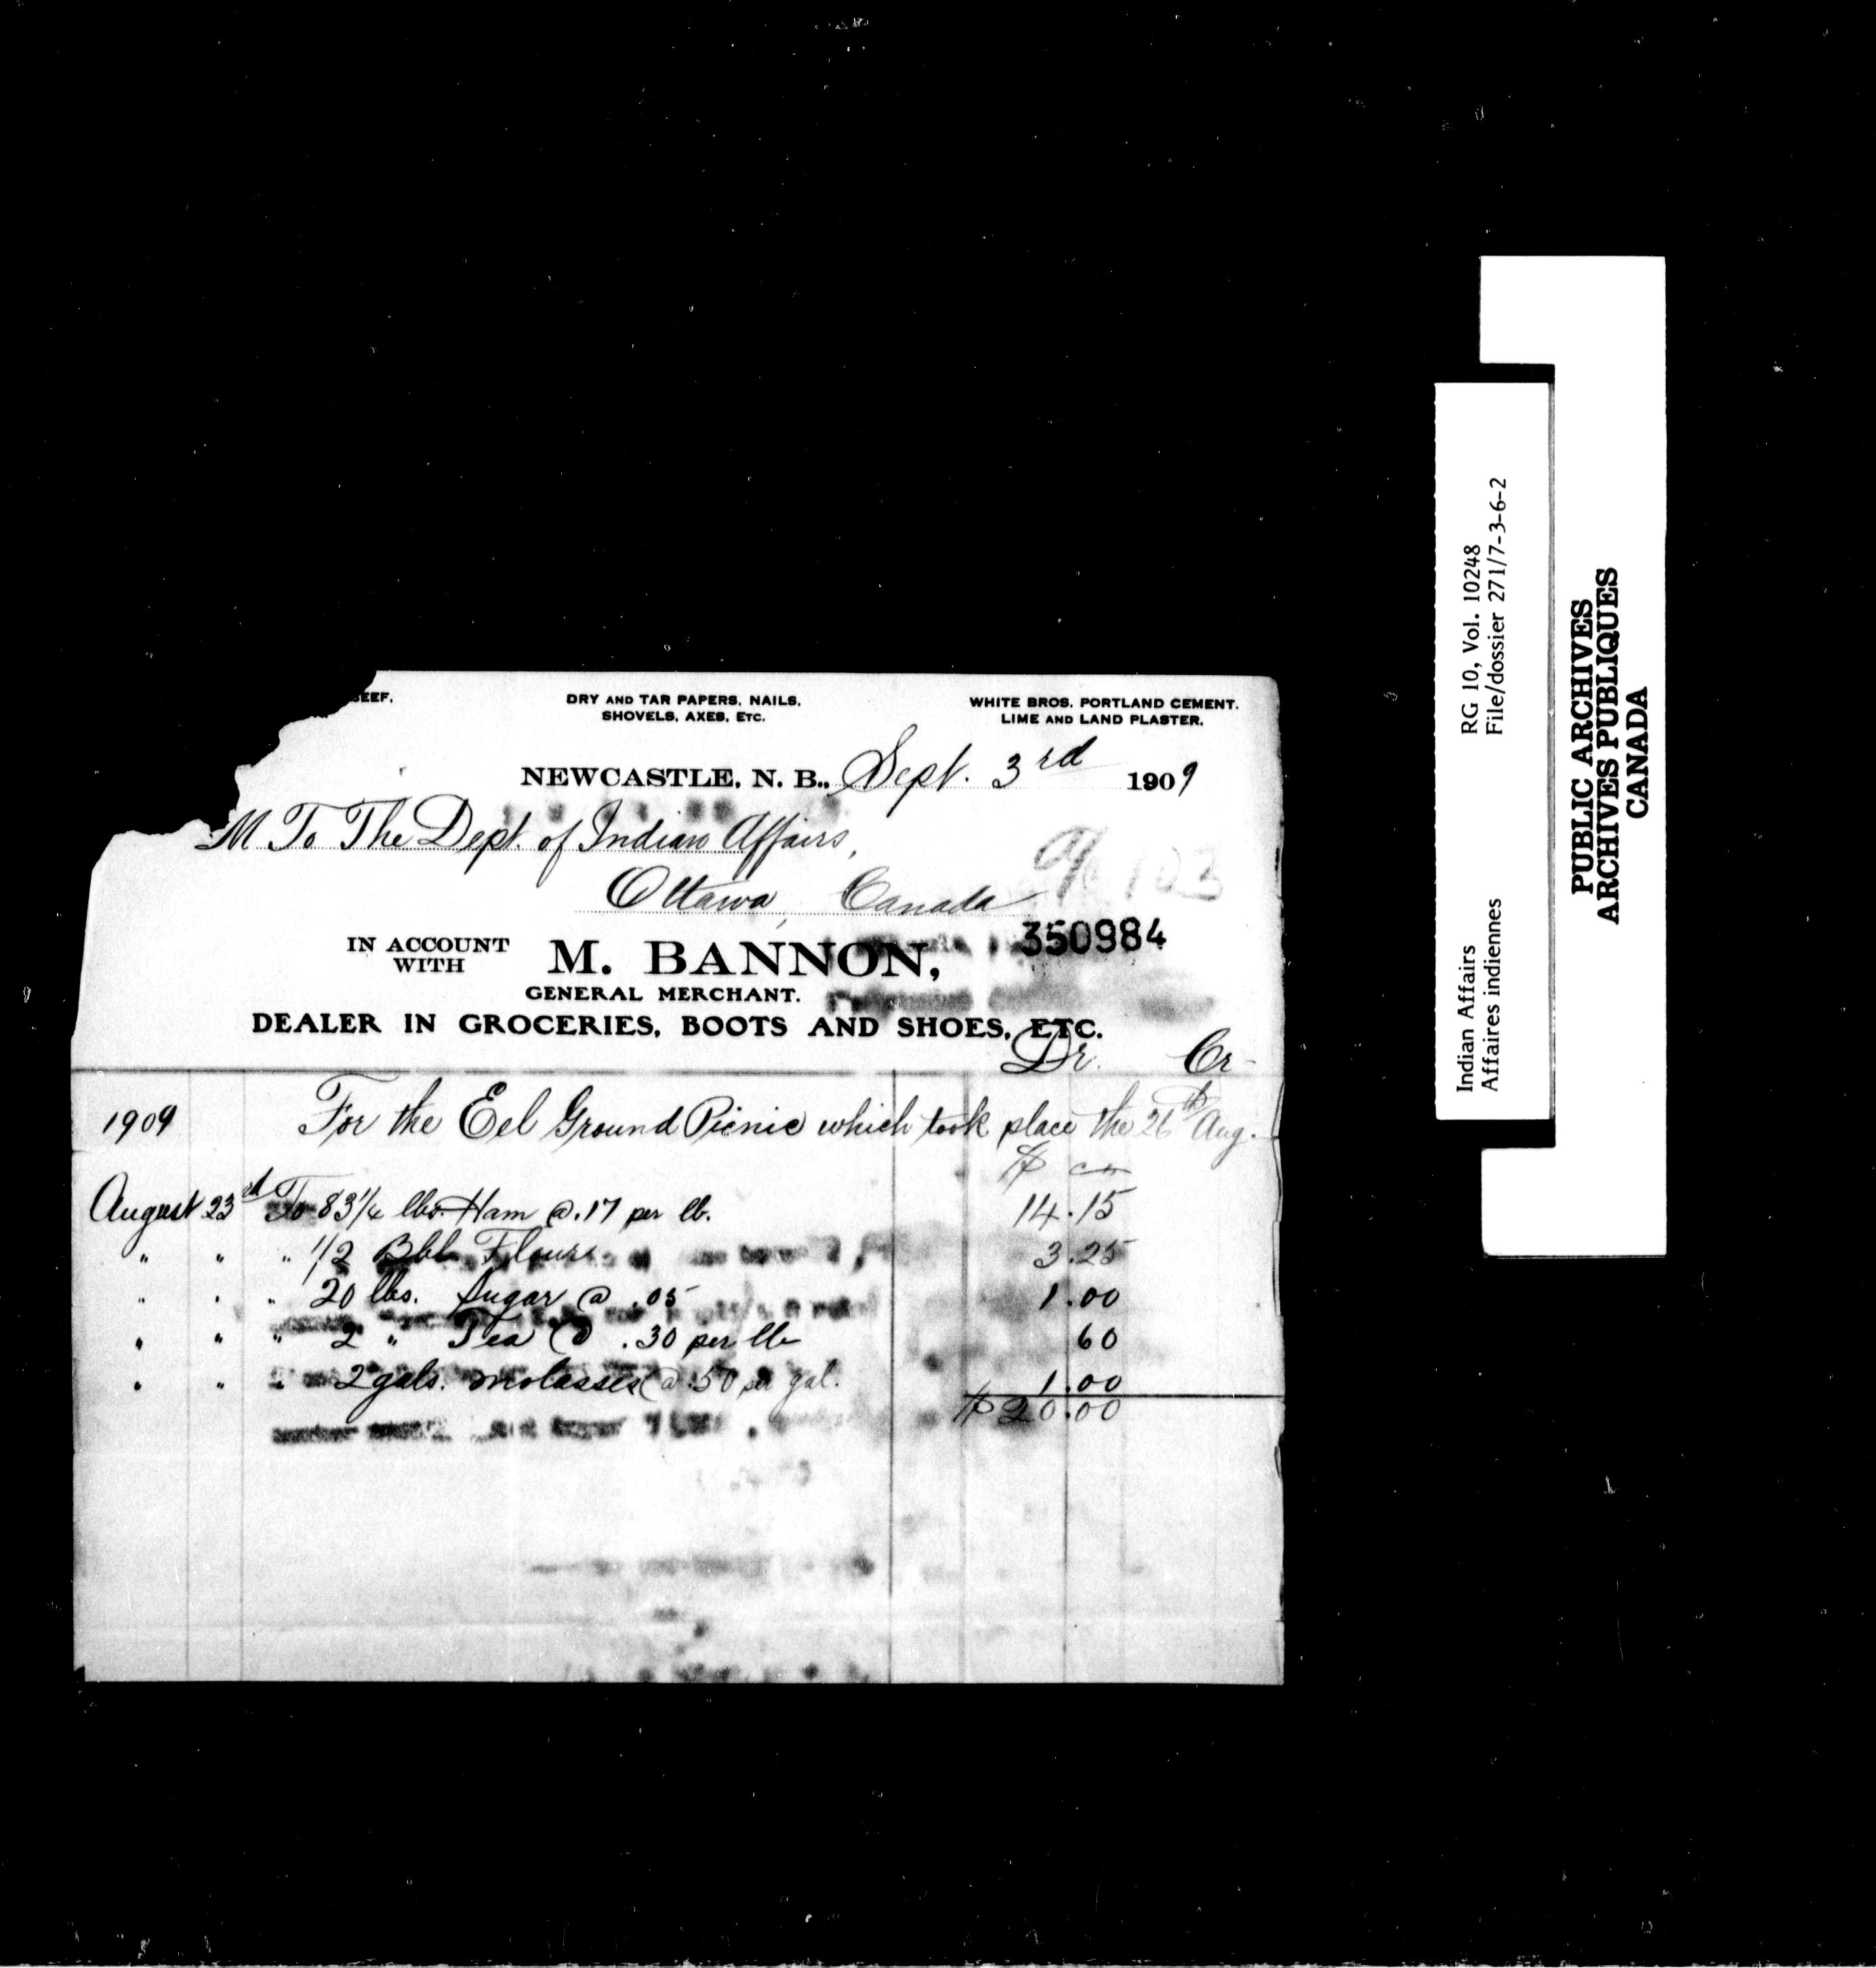 EEF.
DRY AND TAR PAPERS, NAILS,
SHOVELS, AXES, ETC.
WHITE BROS. PORTLAND CEMENT.
LIME AND LAND PLASTER.
NEWCASTLE, N. B., Sept. 3rd 1909
M To The Dept. of Indian Affairs,
Ottawa, Canada
350984
IN ACCOUNT
WITH
M. BANNON,
GENERAL MERCHANT.
DEALER IN GROCERIES, BOOTS AND SHOES, ETC.
Dr. Cr-
1909 For the Eel Ground Picnic which took place the 26th Aug.
$ cts
August 23rd To 83 1/4 lbs. Ham @ .17 per lb. 14.15
" " " 1/2 Bbl. Flour 3.25
" " " 20 lbs. Sugar @ .05 1.00
" " " 2 " Tea @ .30 per lb 60
" " " 2 gals. molasses @ .50 per gal. 1.00
$ 20.00
Indian Affairs RG 10, Vol. 10248
Affaires indiennes File/dossier 271/7-3-6-2
PUBLIC ARCHIVES
ARCHIVES PUBLIQUES
CANADA